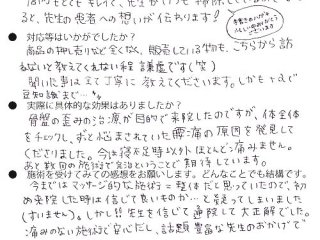 ると、先生の患者への想いが伝わります!
● 対応等はいかがでしたか?
商品の押し売りなど全くなく、販売している物も、こちらから訪
ねないと教えてくれない程 謙虚です(笑)
聞いた事は全て丁寧に 教えてくださいます。しかも
豆知識まで…
● 実際に具体的な効果はありましたか?
骨盤の歪みの治療が目的で来院したのですが、体全体
をチェックし、ずっと悩まされていた腰痛の原因を発見して
くださりました。今は疲れた時以外ほとんど痛みません。
あと数回の施術で完治ということで 期待しています。
● 施術を受けてみての感想をお願いします。どんなことでも結構です。
今まではマッサージ的な施術=整体だと思っていたので、初
め来院した時は信じて良いものか…と疑ってしまいました
(すいません)。しかし!!先生を信じて通院して大正解でした。
痛みのない施術で安心だし、話題豊富な先生のおかげで